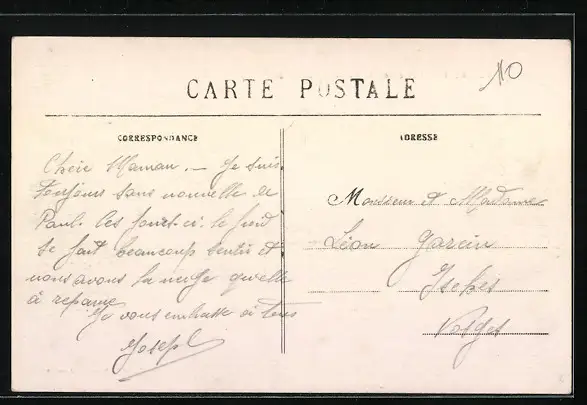 110
CARTE POSTALE
CORRESPONDANCE
ADRESSE
Chere Maman. — Je suis
toujours sans nouvelle de
Paul. Ces jours-ci. le froid
se fait beaucoup sentir et
nous avons la neige quelle
à
Je vous embrasse à tous
Joseph
Monsieur et Madame
Léon Garcin
Vosges